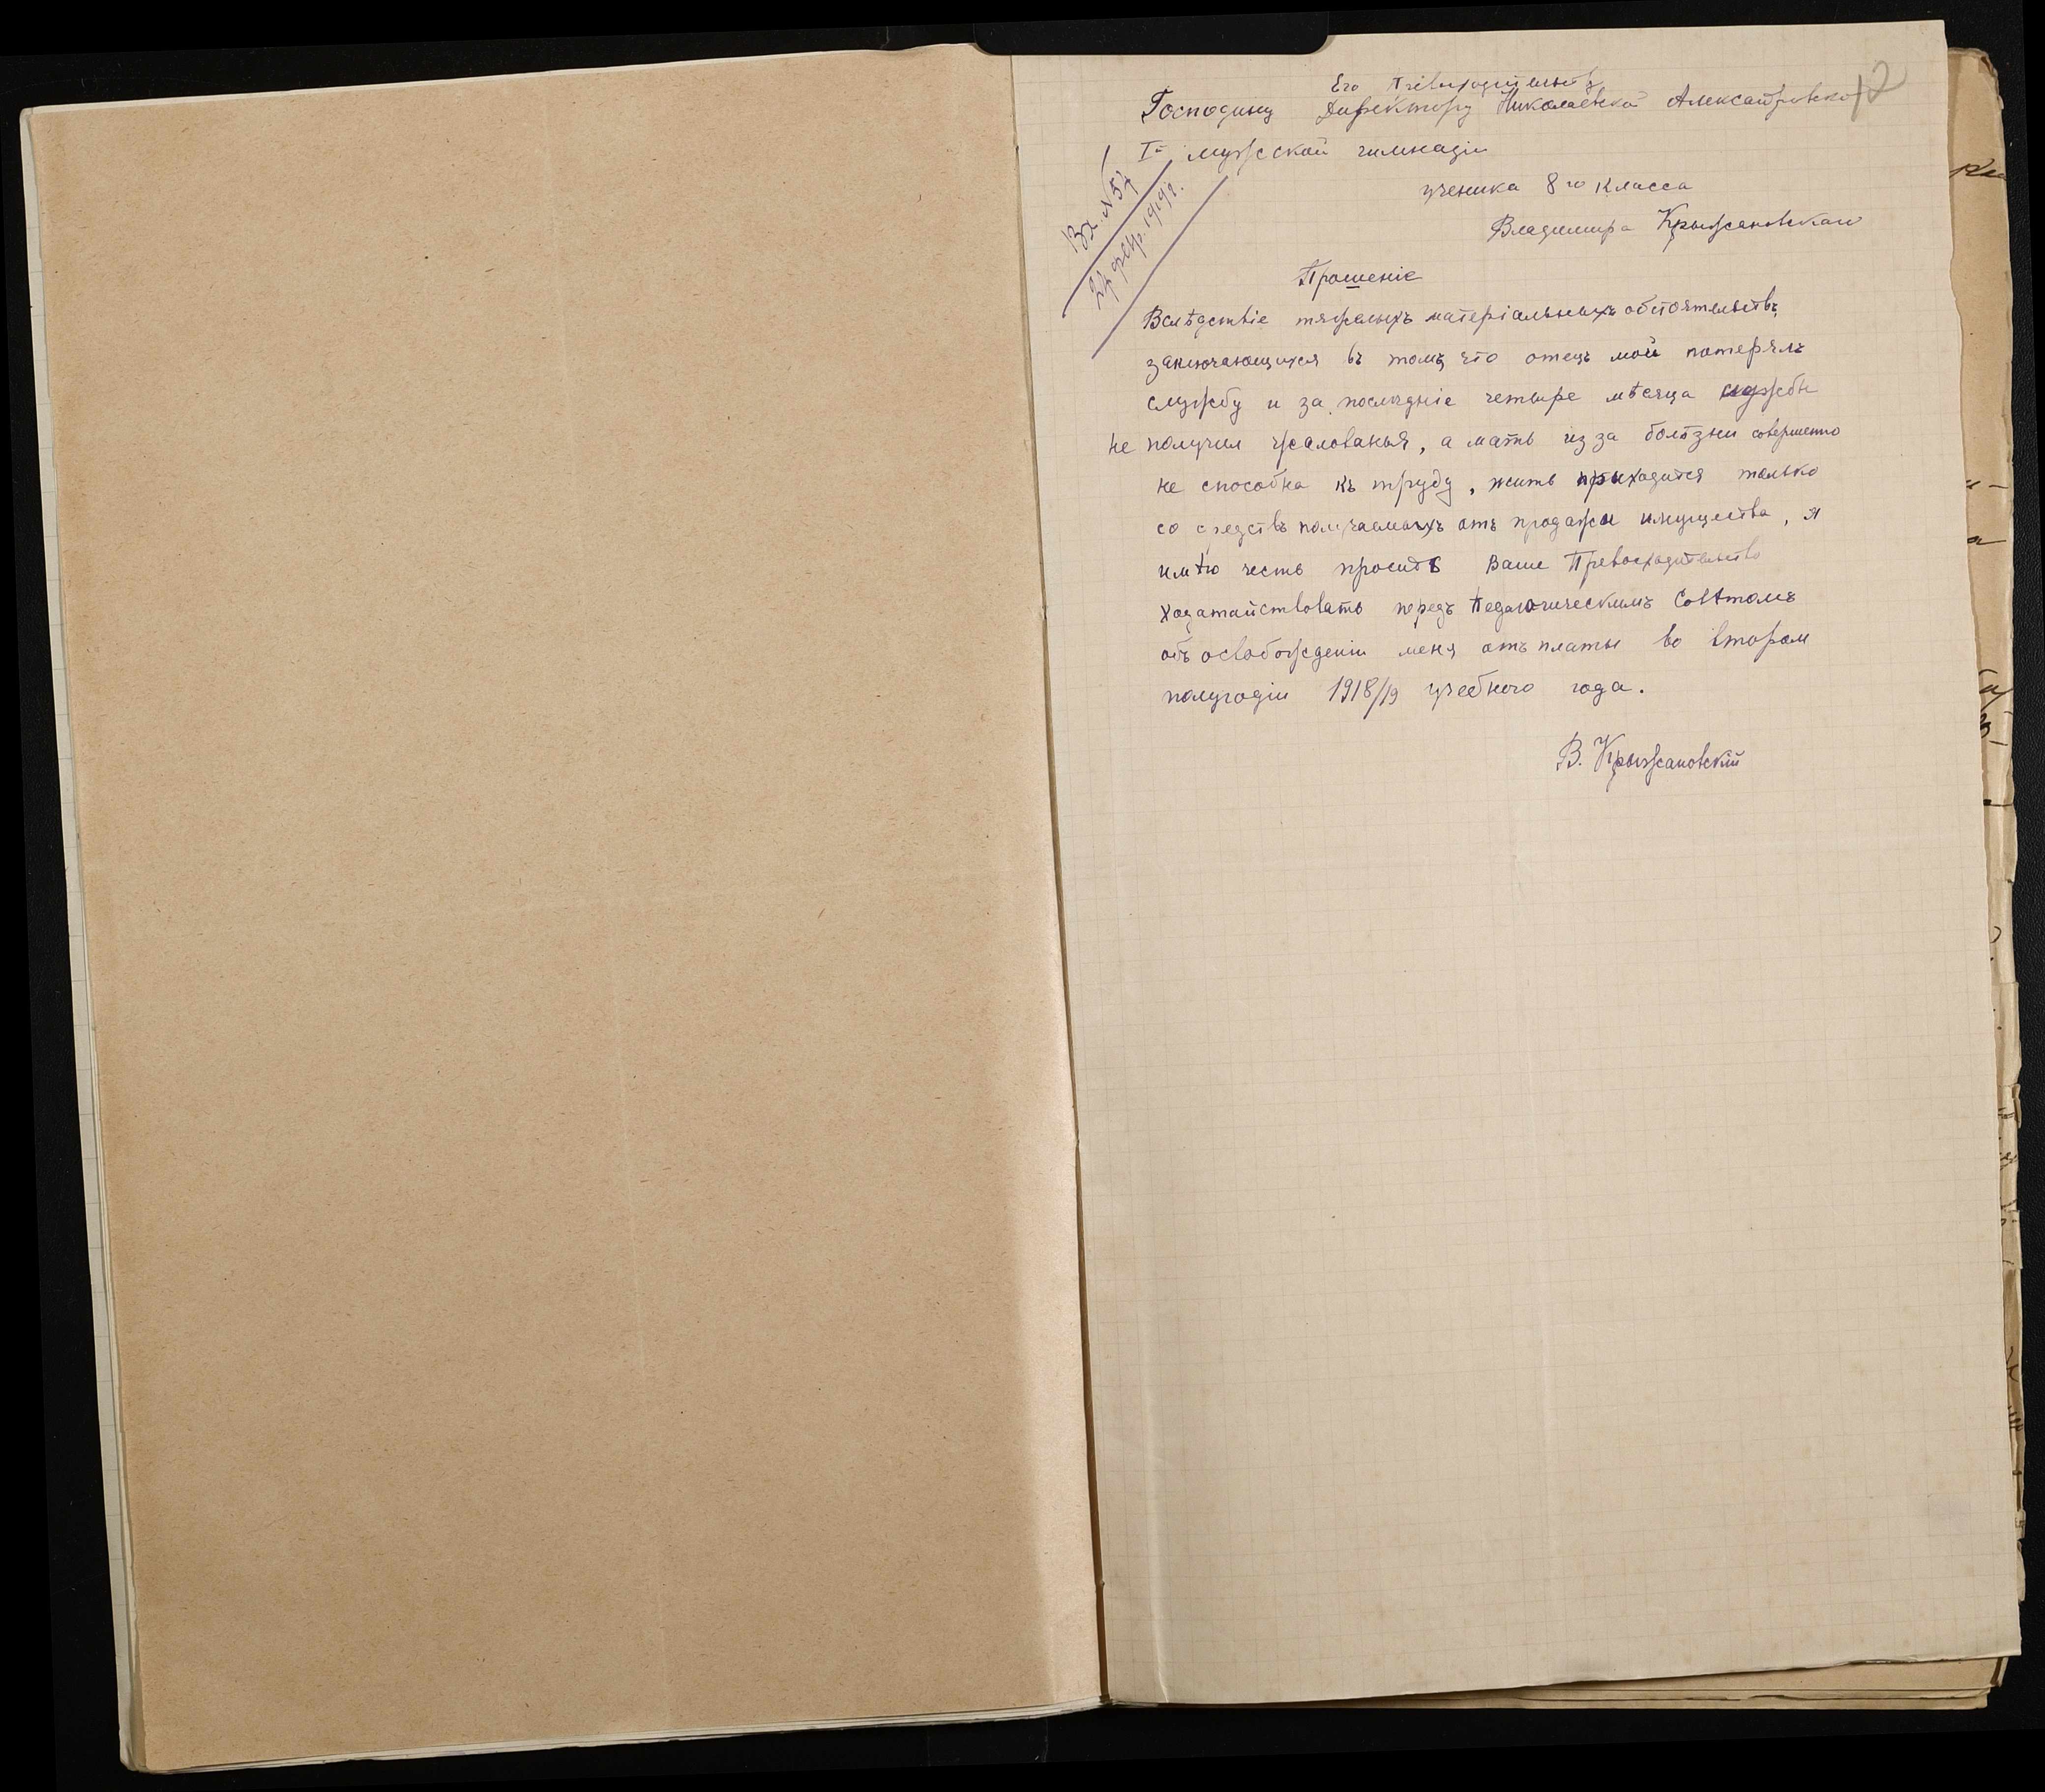 Его Превосходительству
Господину Директору Николаевской Александровской
12
Iй мужской гимназіи
Вх. № 57
27 февр. 1919 г.
ученика 8го класса
Владимира Крыжановскаго
Прошеніе
Вслѣдствіе тяжелыхъ матеріальныхъ обстоятельствъ,
заключающихся въ томъ, что отецъ мой потерялъ
службу и за послѣдніе четыре мѣсяца службы
не получил жалованья, а мать из за болѣзни совершенно
не способна къ труду, жить приходится только
со средствъ получаемыхъ отъ продажи имущества, я
имѣю честь просить Ваше Превосходительство
ходатайствовать передъ Педагогическимъ Совѣтомъ
объ освобожденіи меня отъ платы во втором
полугодіи 1918/19 учебного года.
В. Крыжановскій